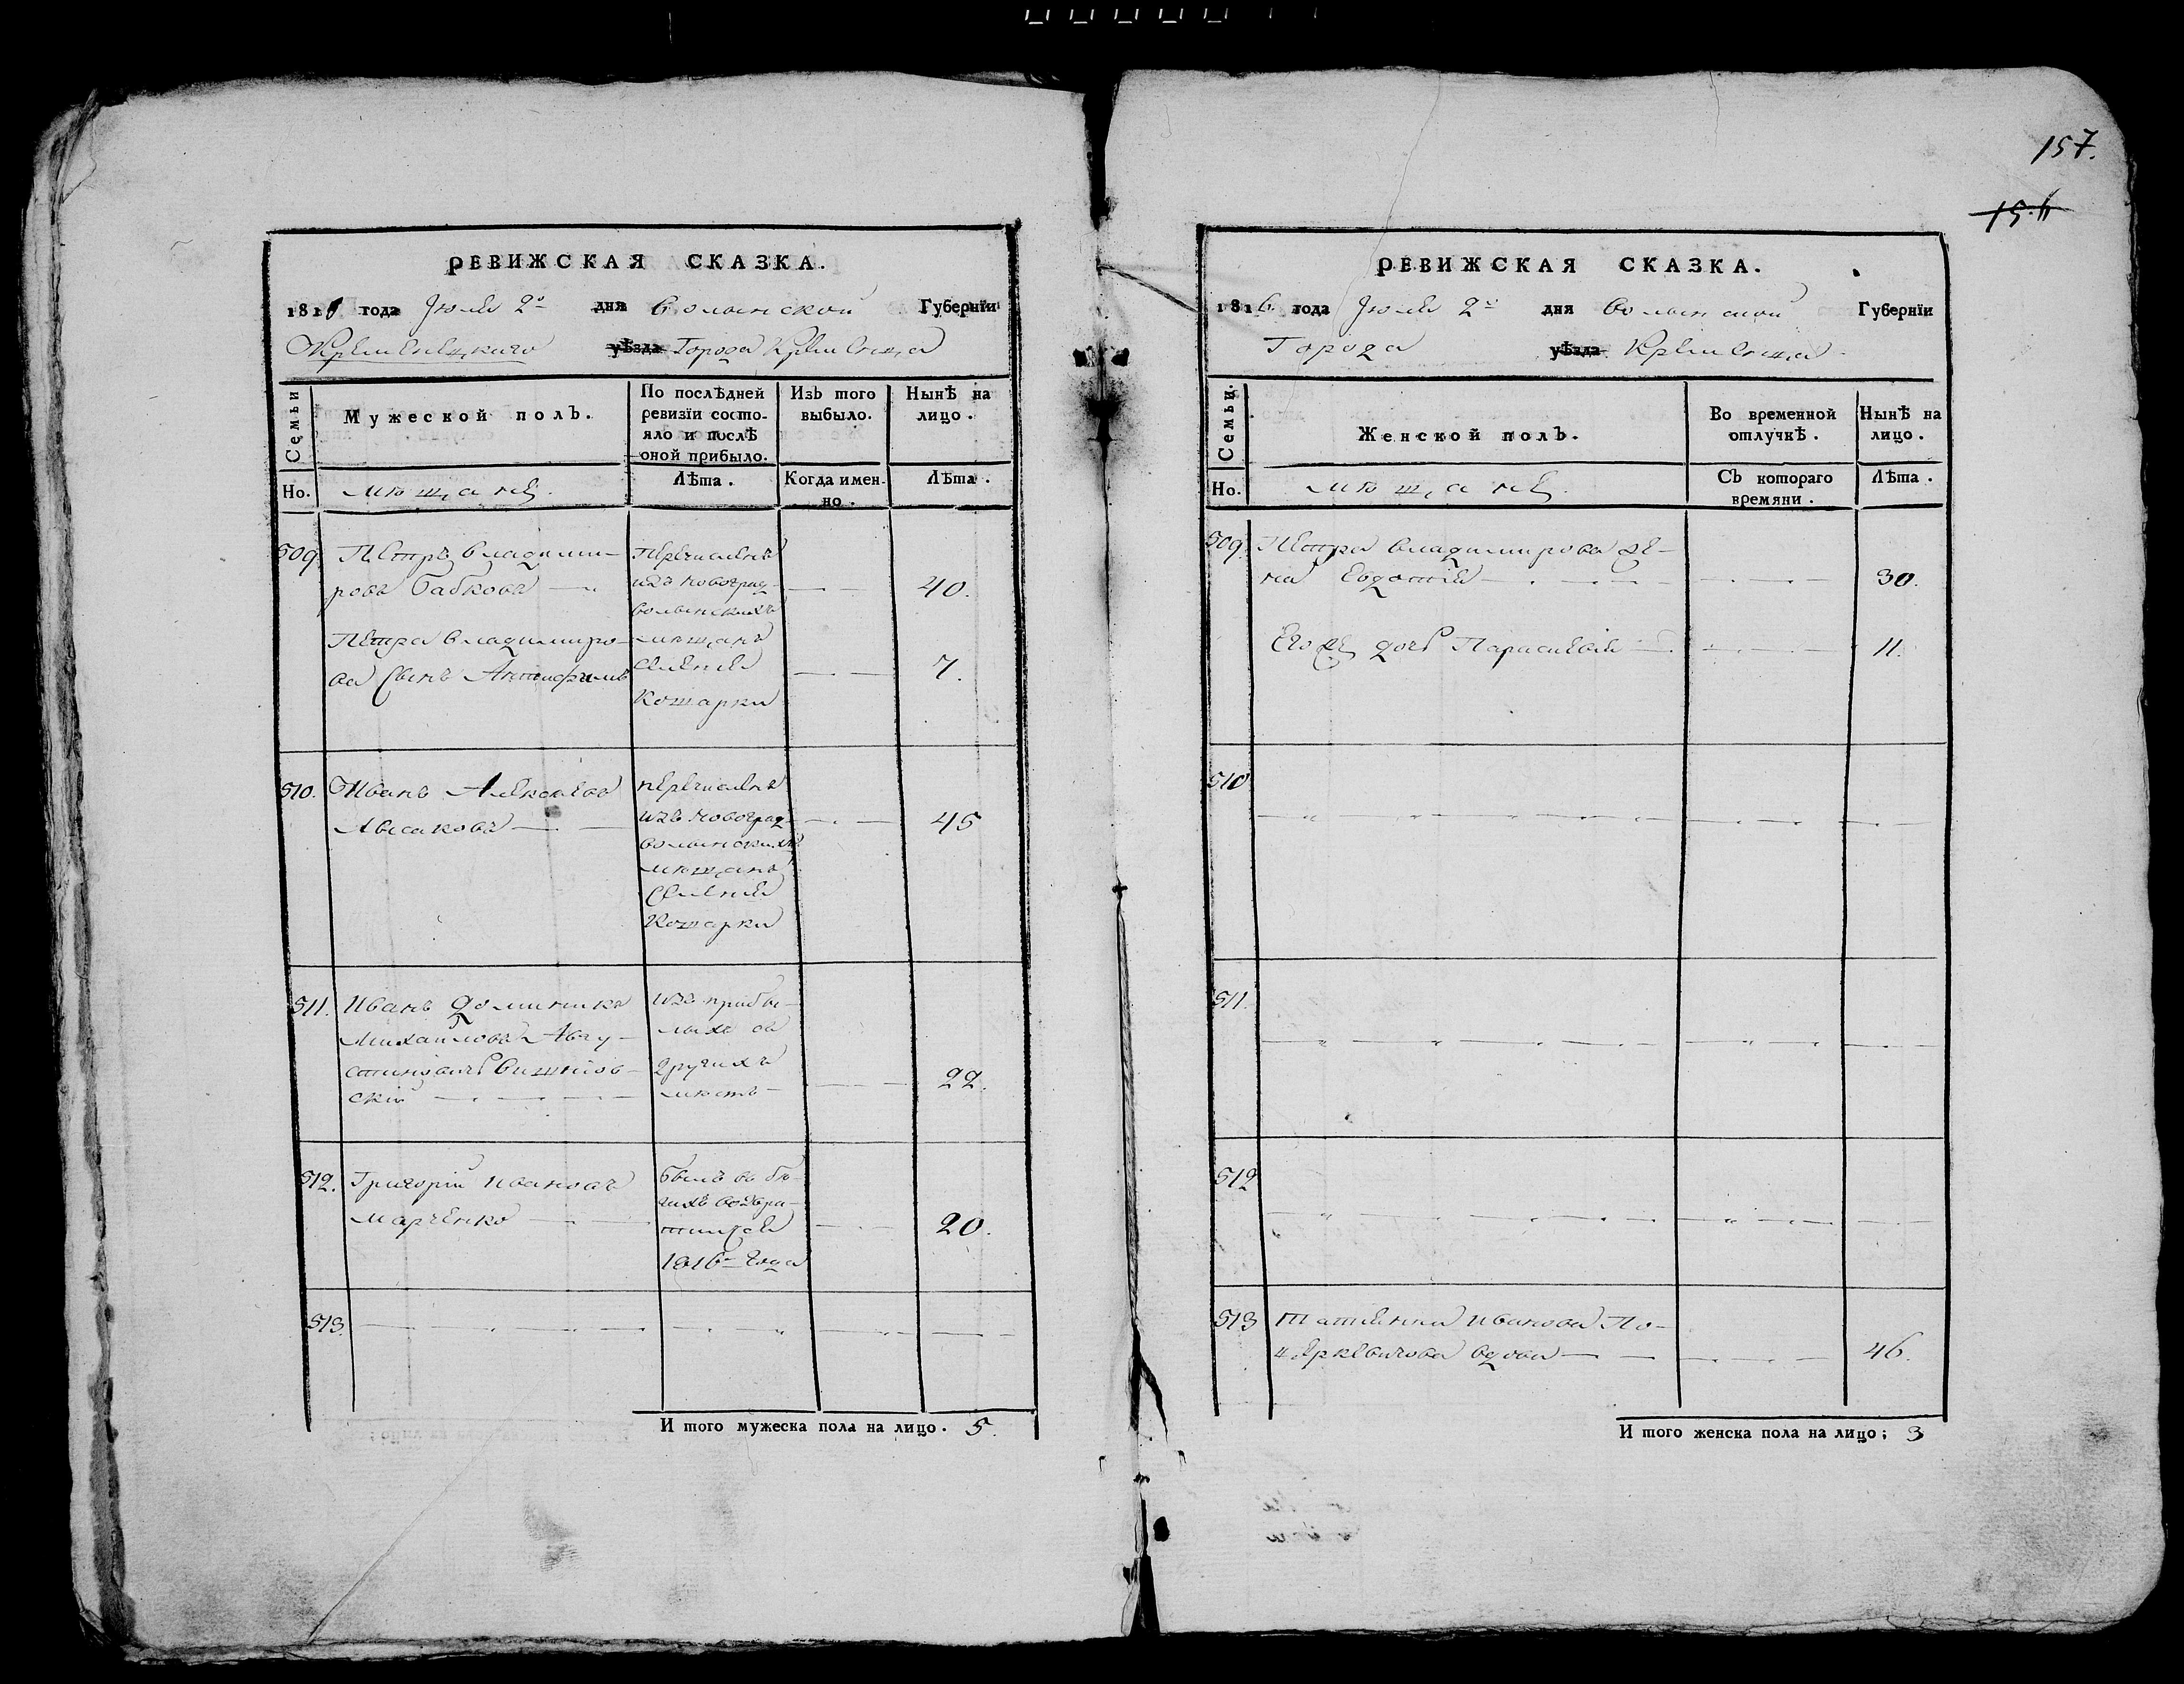 157.
15.6
РЕВИЖСКАЯ СКАЗКА.
1816 года Июля 2º дня Волынской Губернїи
Кременецкаго уѣзда Города Кременца
Семьи
Мужеской полъ.
По послѣдней
ревизїи состо-
яло и послѣ
оной прибыло.
Изъ того
выбыло.
Нынѣ на
лицо.
Но.
мѣщане
Лѣта.
Когда имен-
но.
Лѣта.
509. Петръ Владими-
ровъ Бабковъ
40.
Петра Владимиро-
ва сынъ Антифилъ
7.
перечисленъ
изъ новоград-
волынскихъ
мѣщанъ
селения
Кошарки
510. Иванъ Алексеевъ
45
перечисленъ
изъ новоград-
волынскихъ
мѣщанъ
селения
Кошарки
511. Иванъ Доминикъ
Михайловъ Авгу-
скїй
22.
изъ прибы-
лыхъ съ
другихъ
мѣстъ
512. Григорїй Ивановъ
Марченко
20.
былъ въ бѣ-
гахъ возвра-
тился
1816го года
513.
И того мужеска пола на лицо. 5.
РЕВИЖСКАЯ СКАЗКА.
1816 года Июля 2º дня Волынской Губернїи
Города уѣзда Кременца
Семьи.
Женской полъ.
Во временной
отлучкѣ.
Нынѣ на
лицо.
Но.
мѣщане
Съ котораго
времяни.
Лѣта.
509. Петра Владимирова же-
на Евдотия
30.
Его же дочь Параскевия
11.
510
511.
512
513 Татиянна Иванова По-
вдова
46.
И того женска пола на лицо; 3